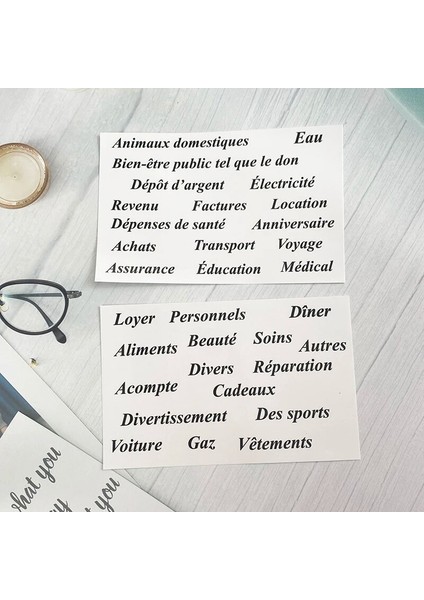 Animaux domestiques Eau
Bien-être public tel que le don
Dépôt d'argent Électricité
Revenu Factures Location
Dépenses de santé Anniversaire
Achats Transport Voyage
Assurance Éducation Médical
Loyer Personnels Dîner
Aliments Beauté Soins Autres
Divers Réparation
Acompte Cadeaux
Divertissement Des sports
Voiture Gaz Vêtements
what you
you